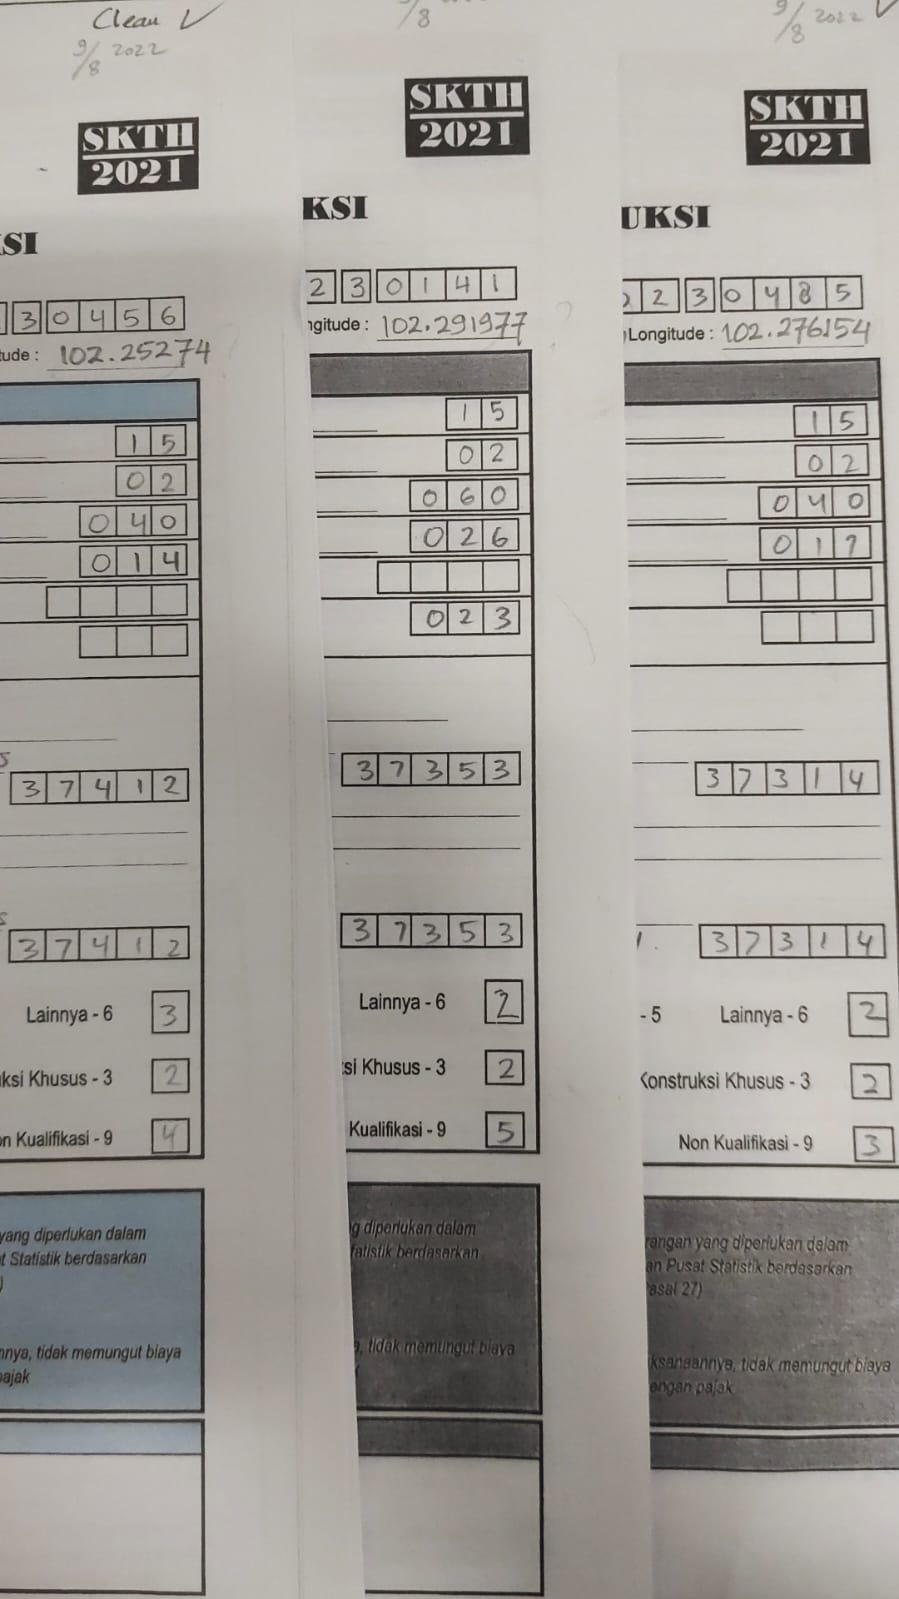 Clean V
9/8 2022
SKTH
2021
KSI
30456
tude : 102.25274
15
02
040
014
37412
37412
Lainnya - 6 3
ksi Khusus - 3 2
on Kualifikasi - 9 4
yang diperlukan dalam
t Statistik berdasarkan
)
nnya, tidak memungut biaya
pajak
/8
SKTH
2021
KSI
230141
ngitude : 102.291977
15
02
060
026
023
37353
37353
Lainnya - 6 2
si Khusus - 3 2
Kualifikasi - 9 5
g diperlukan dalam
tatistik berdasarkan
, tidak memungut biaya
9/8 2022 V
SKTH
2021
UKSI
2230485
Longitude : 102.276154
15
02
040
017
37314
37314
- 5 Lainnya - 6 2
Konstruksi Khusus - 3 2
Non Kualifikasi - 9 3
rangan yang diperlukan dalam
an Pusat Statistik berdasarkan
asal 27)
ksanaannya, tidak memungut biaya
engan pajak